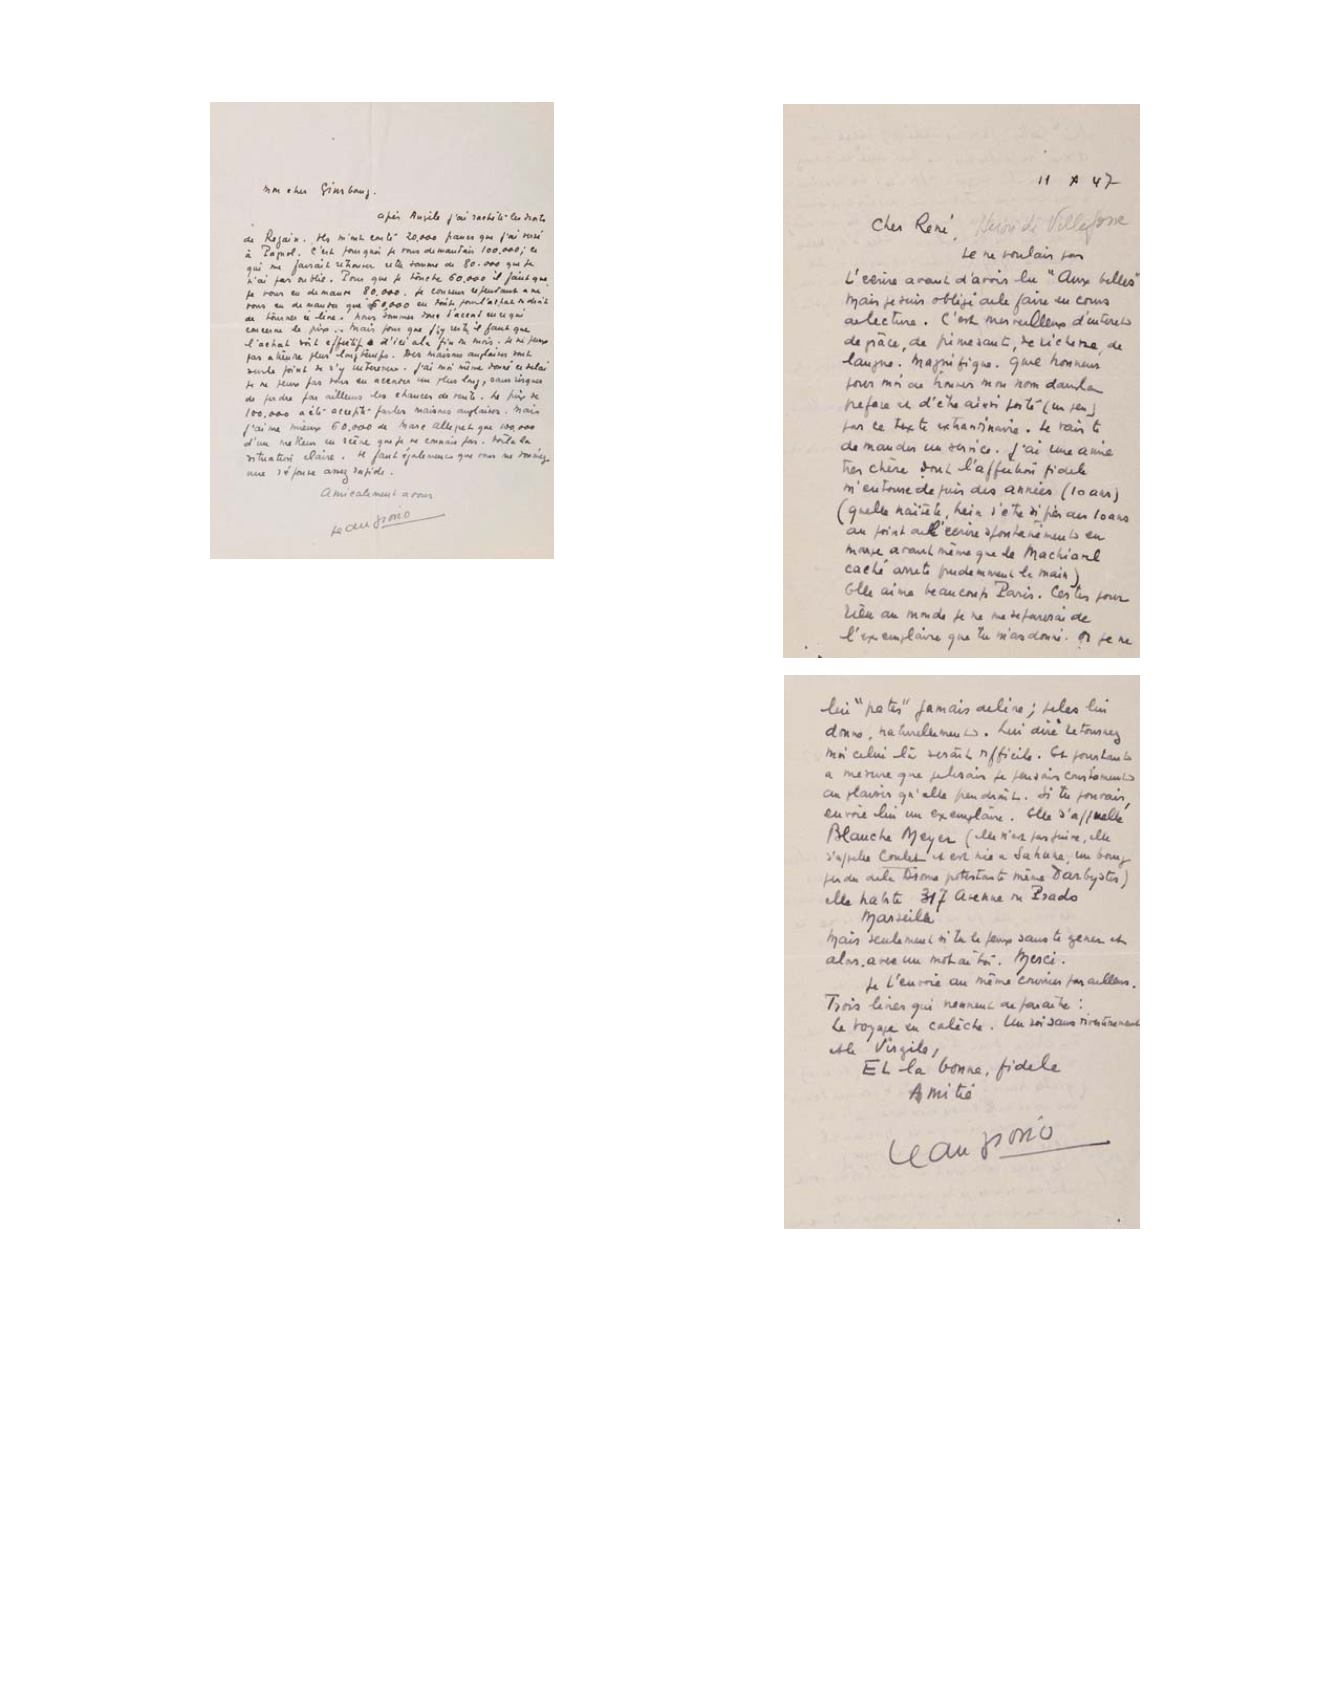 Mon cher Ginsbourg.
après Angèle j'ai racheté les droits
de Regain. Ils m'ont coûté 20.000 francs que j'ai versé
à Pagnol. C'est pourquoi je vous demandais 100.000; ce
qui me faisait retrouver cette somme de 80.000 que je
n'ai pas oublié. Pour que je touche 60.000 il faut que
je vous en demande 80.000. Je consens cependant a ne
vous en demander que 60.000 en tout pour l'achat du droit
de tourner ce livre. Nous sommes donc d'accord en ce qui
concerne le prix.. Mais pour que j'y reste il faut que
l'achat soit effectif d'ici a la fin du mois. Je ne peux
pas attendre plus longtemps. Des maisons anglaises sont
sur le point de s'y intéresser. J'ai moi même donné ce délai
je ne peux pas vous en accorder un plus long, sans risquer
de perdre par ailleurs les chances de vente. Le prix de
100.000 a été accepté par les maisons anglaises. Mais
j'aime mieux 60.000 de Marc Allegret que 100,000
d'un metteur en scène que je ne connais pas. Voilà la
situation claire. Il faut également que vous me donniez
une réponse assez rapide.
Amicalement a vous
Jean Giono
11 X 47
Cher René, Héron de Villefosse
Je ne voulais pas
t'ecrire avant d'avoir lu "Aux belles"
mais je suis obligé de le faire en cours
de lecture. C'est merveilleux d'interet
de grâce, de primesaut, de richesse, de
langue. Magnifique. Quel honneur
pour moi de trouver mon nom dans la
preface et d'être ainsi porté (un peu)
par ce texte extraordinaire. Je vais te
demander un service. J'ai une amie
tres chère dont l'affection fidele
m'entoure depuis des années (10 ans)
(quelle naïveté, hein d'être si fier des 10 ans
au point de l'écrire spontanément en
marge avant même que le Machiavel
caché arrete prudemment la main)
Elle aime beaucoup Paris. Certes pour
rien au monde je ne me separerai de
l'exemplaire que tu m'as donné. Or je ne
lui "prête" jamais de livre; je les lui
donne, naturellement. Lui dire retournez
moi celui là serait difficile. Et pourtant
a mesure que je lisais je pensais constamment
au plaisir qu'elle prendrait. Si tu pouvais,
envoie lui un exemplaire. Elle s'appelle
Blanche Meyer (elle n'est pas juive, elle
s'appelle Coulet et est née a Sahune, un bourg
perdu de la Drome protestante même Darbyste)
elle habite 317 Avenue du Prado
Marseille
Mais seulement si tu le peux sans te gener et
alors, avec un mot de toi. Merci.
Je t'envoie au même courrier par ailleurs.
Trois livres qui viennent de paraître :
Le voyage en calèche. Un roi sans divertissement
et le Virgile,
Et la bonne, fidele
Amitié
Jean Giono